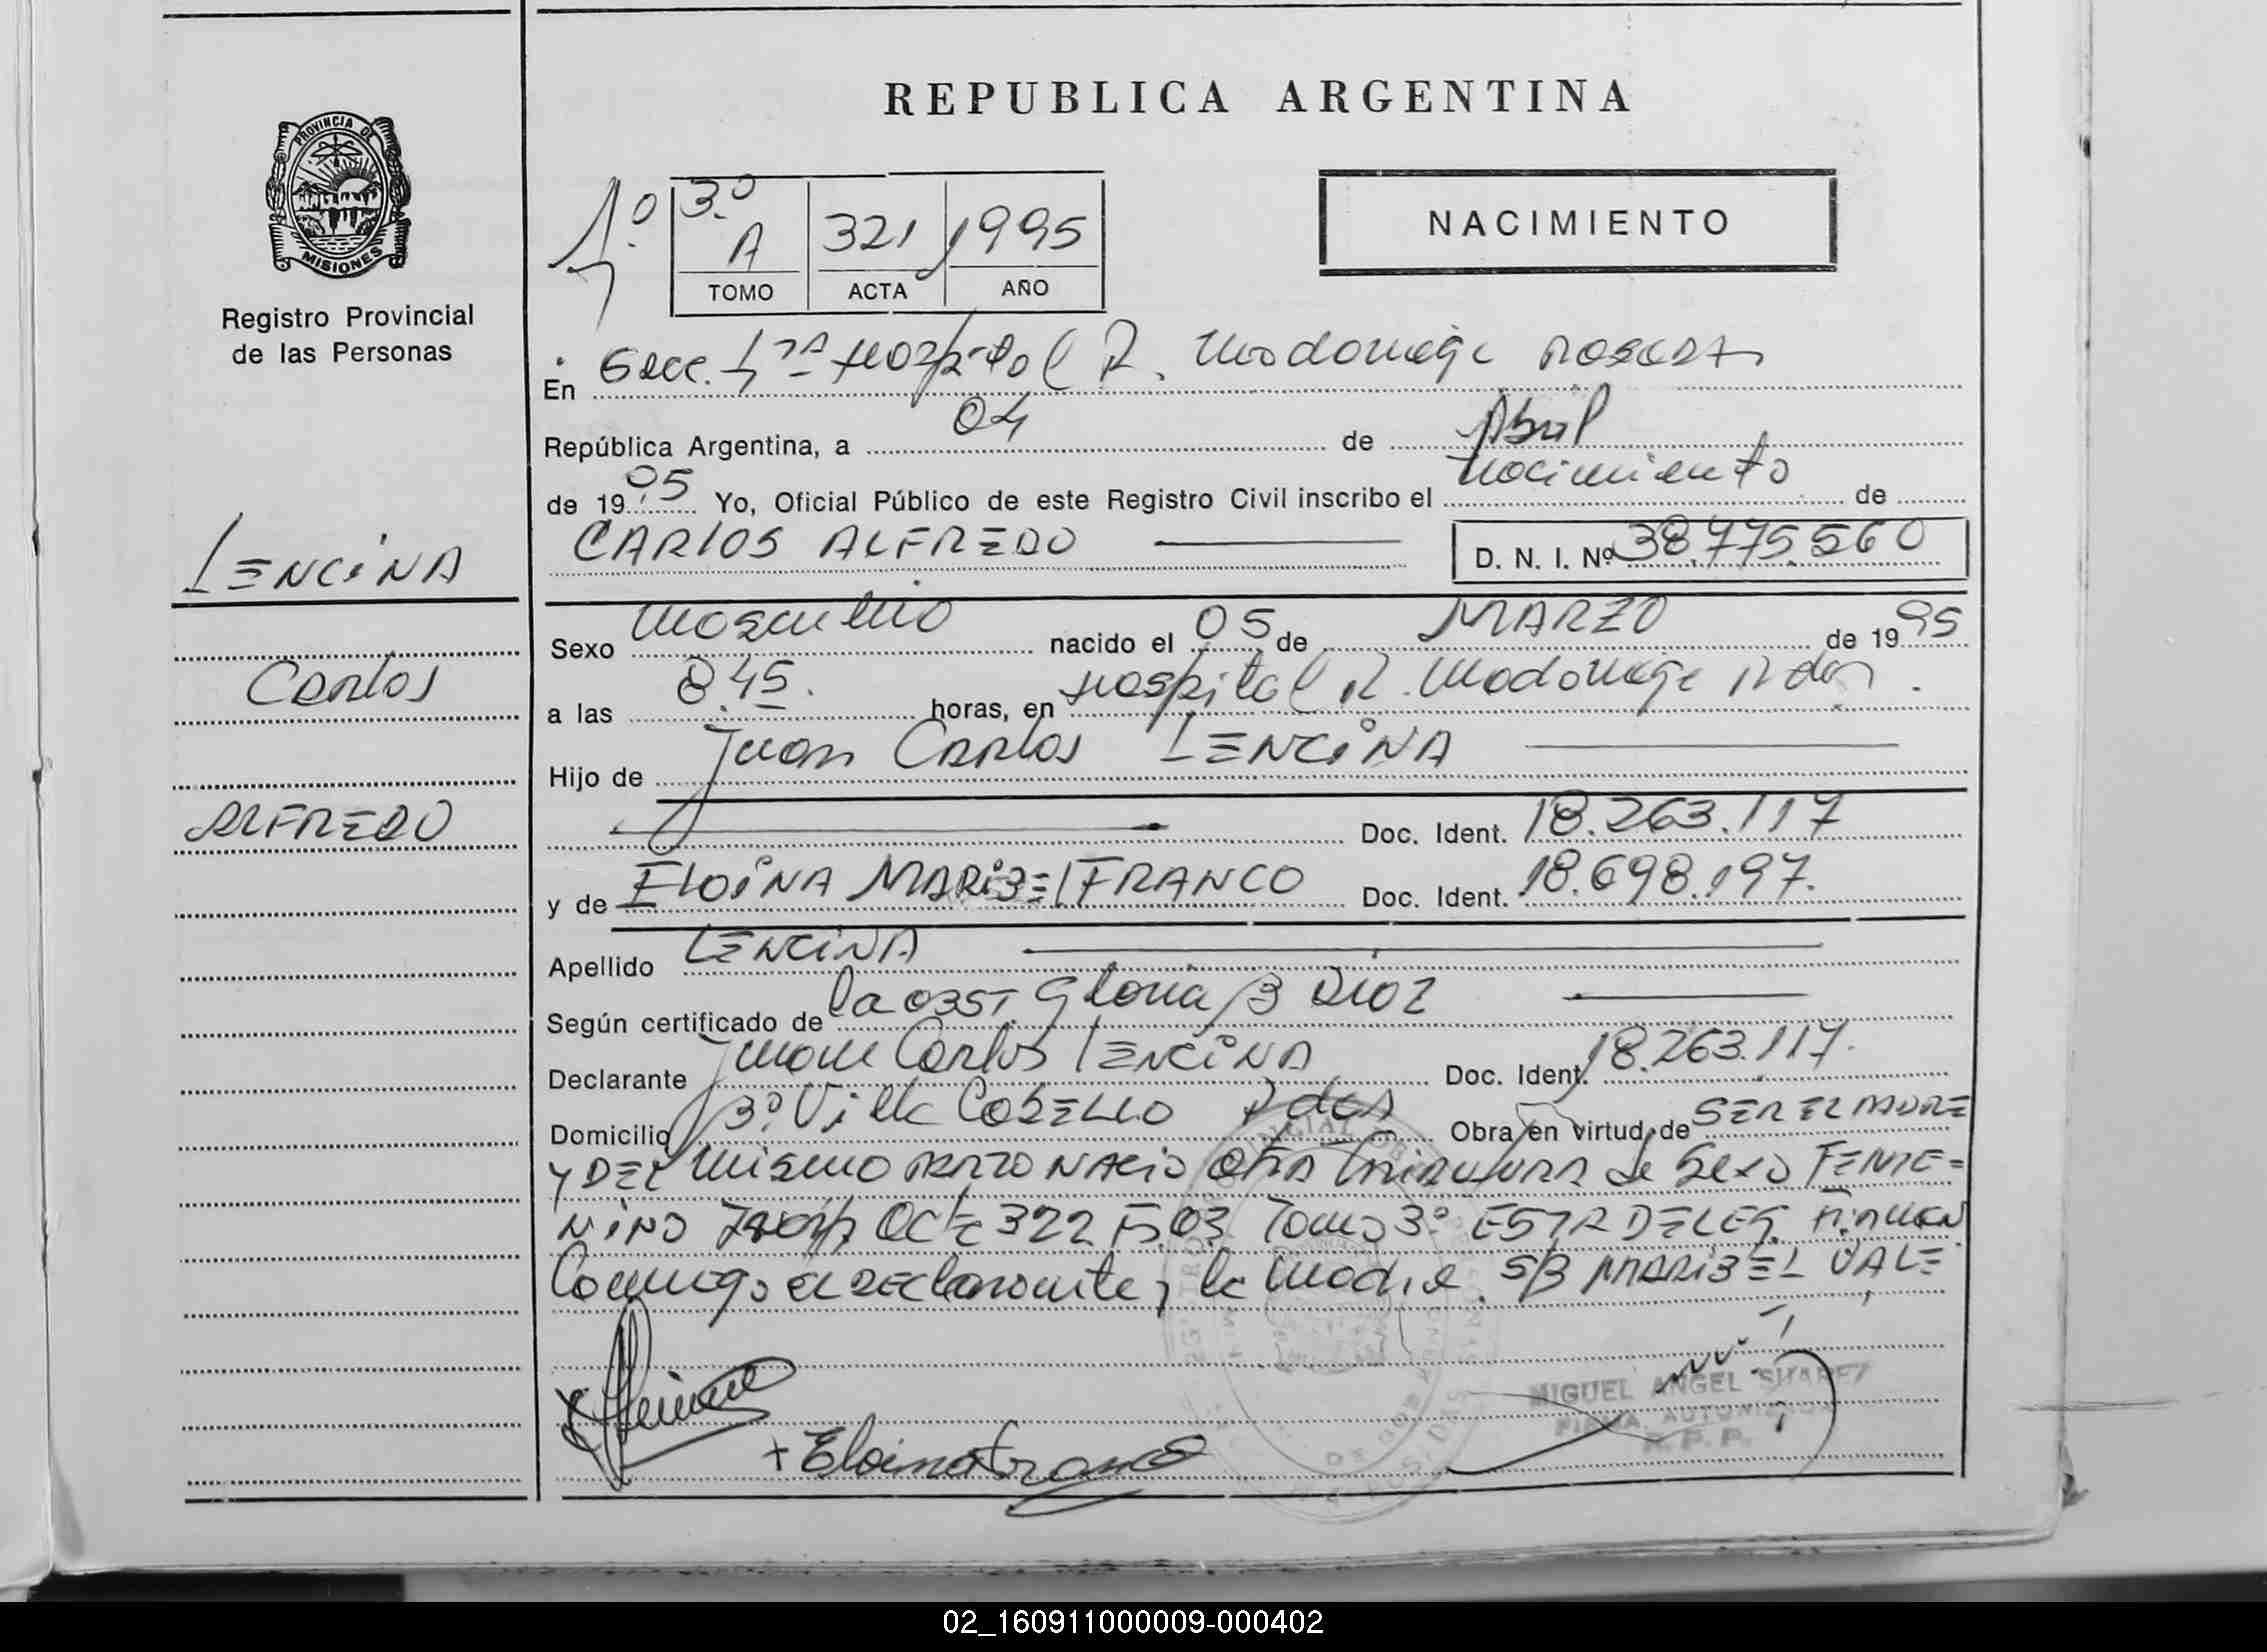 REPUBLICA ARGENTINA
PROVINCIA DE
MISIONES
Registro Provincial
de las Personas
1º
3º A 321 1995
TOMO ACTA AÑO
NACIMIENTO
En Secc. 1ra Hospital R. Madariaga Posadas
República Argentina, a 04 de Abril
de 1995 Yo, Oficial Público de este Registro Civil inscribo el nacimiento de
CARLOS ALFREDO D. N. I. Nº 38.775.560
LENCINA
Carlos
ALFREDO
Sexo Masculino nacido el 05 de MARZO de 1995
a las 8.45. horas, en Hospital R. Madariaga Pdas.
Hijo de Juan Carlos LENCINA
Doc. Ident. 18.263.117
y de ELOINA MARIBEL FRANCO Doc. Ident. 18.698.197.
Apellido LENCINA
Según certificado de la OBST. Gloria B Diaz
Declarante Juan Carlos LENCINA Doc. Ident. 18.263.117.
Domicilio Bº Villa Cabello Pdas Obra en virtud de SER EL PADRE
y DEL mismo PARTO NACIO OTRA CRIATURA de Sexo FEME=
NINO Inscrip Acta 322 F. 03 Tomo 3º ESTA DELEG. FIRMAN
Conmigo el DEClarante y la Madre. S/B MARIBEL VALE
Eloina Franco
MIGUEL ANGEL SUAREZ
FIRMA AUTORIZADA
R. P. P.
02_160911000009-000402